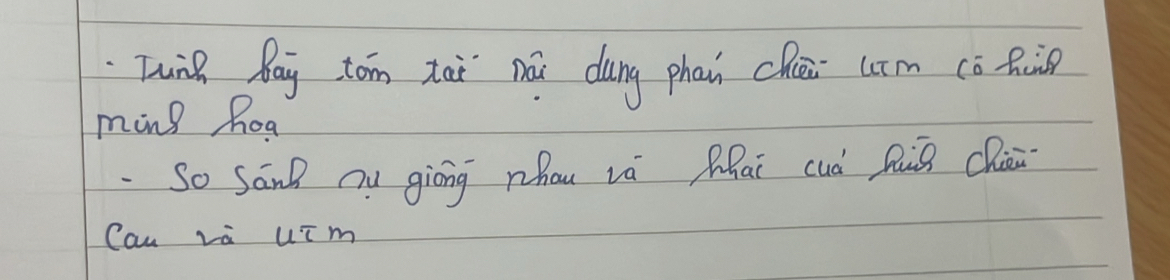 - Trình bày tóm tắt nội dung phán chiếu UTM có hình
minh hoạ
- So sánh sự giống nhau và khác cuả hình chiếu
Gau và UTM